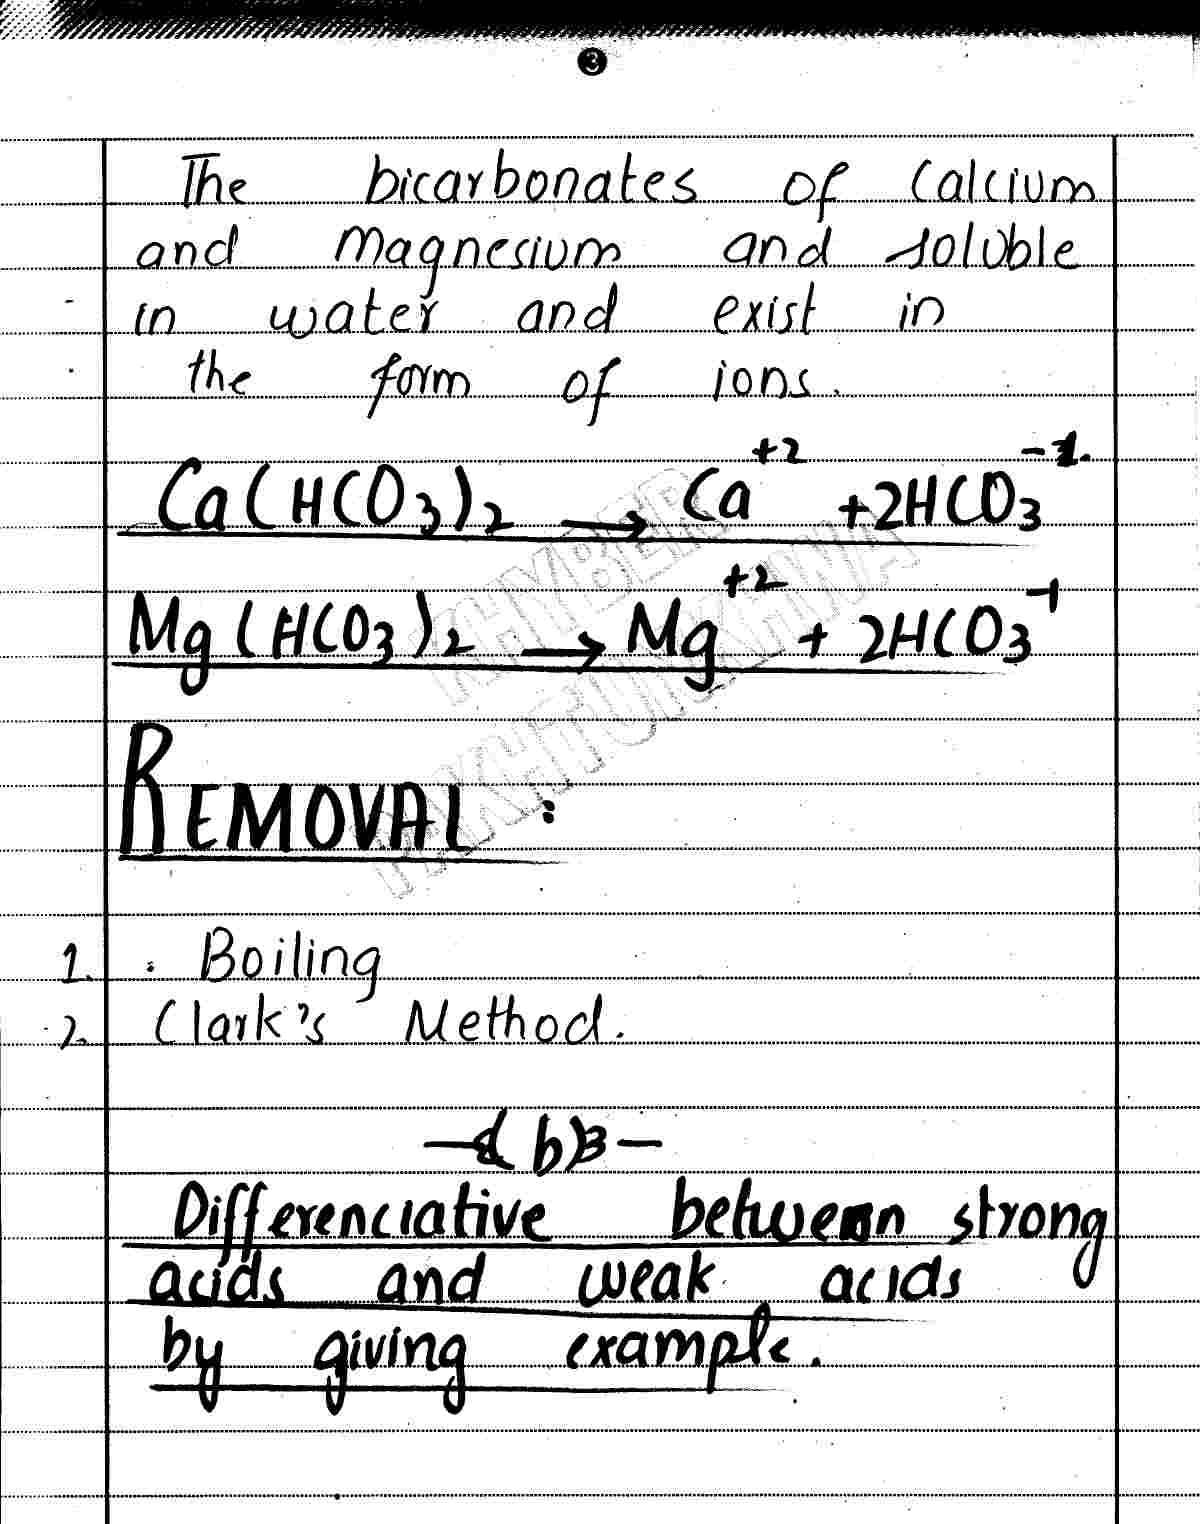 3
The bicarbonates of Calcium
and Magnesium and soluble
in water and exist in
the form of ions.
Ca(HCO3)2 → Ca+2 + 2HCO3-1
Mg(HCO3)2 → Mg+2 + 2HCO3-1
KHYBER
PAKHTUNKHWA
REMOVAL :
1. Boiling
2. Clark's Method.
(b)
Differenciative between strong
acids and weak acids
by giving example.